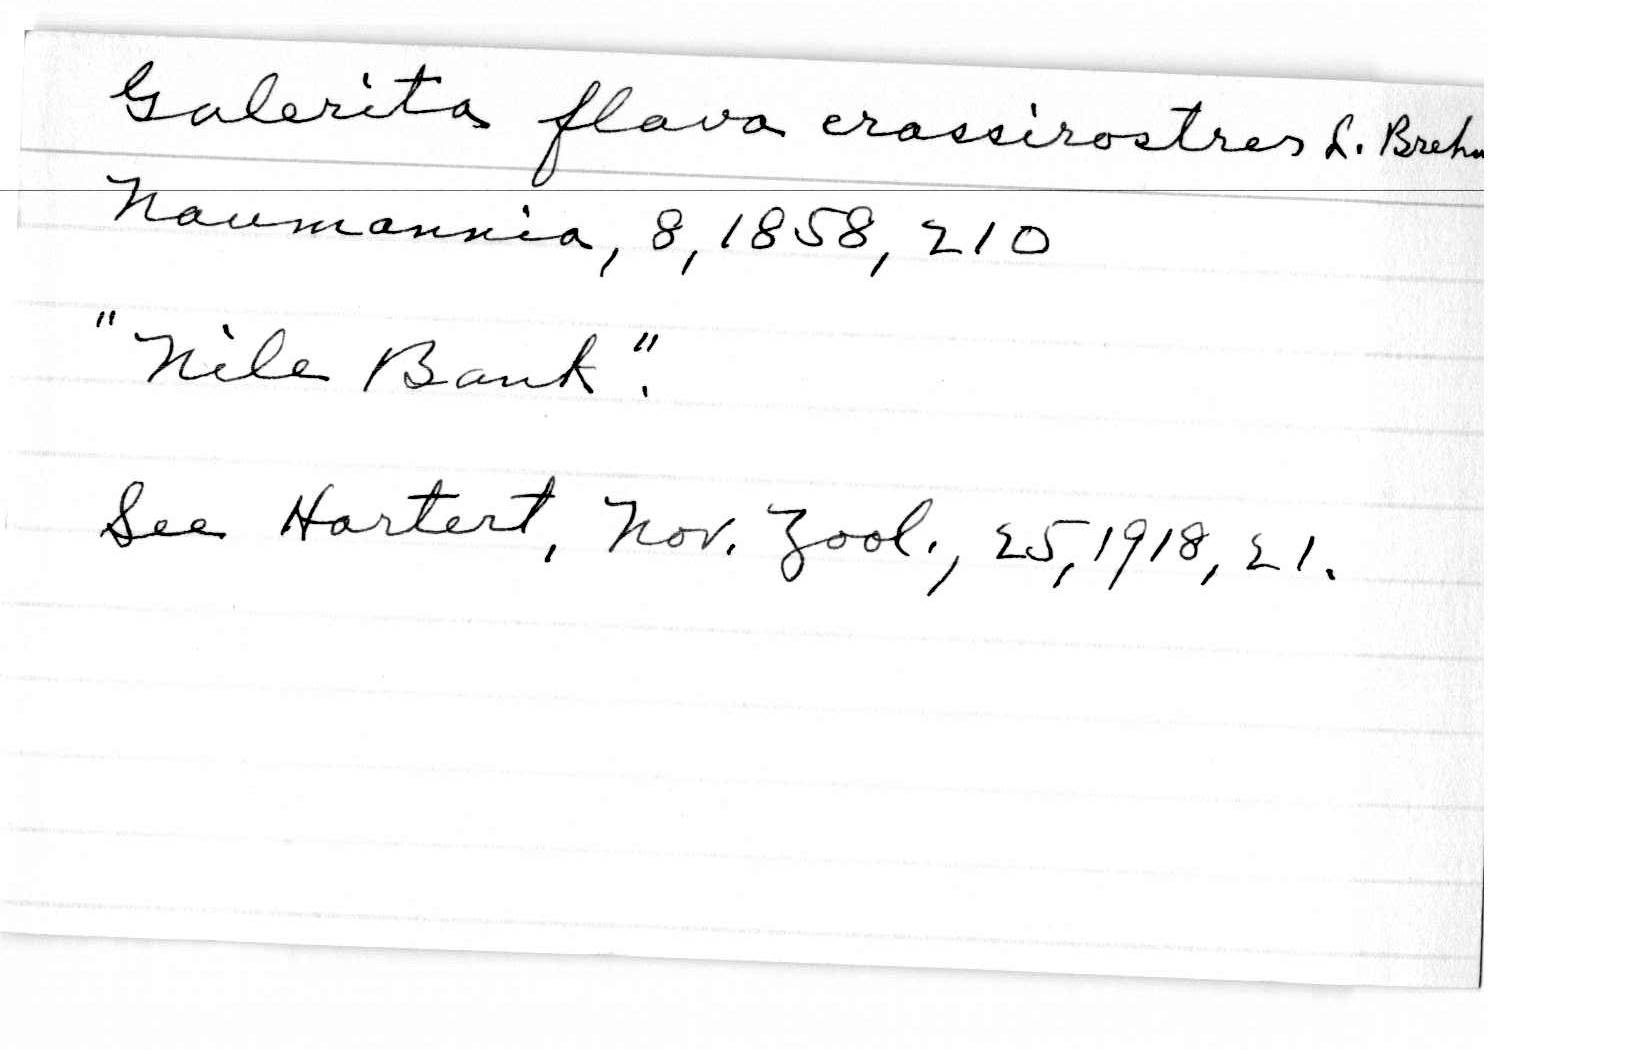 Galerita flava crassirostres L. Brehm
Naumannia, 8, 1858, 210
"Nile Bank".
See Hartert, Nov. Zool., 25, 1918, 21.